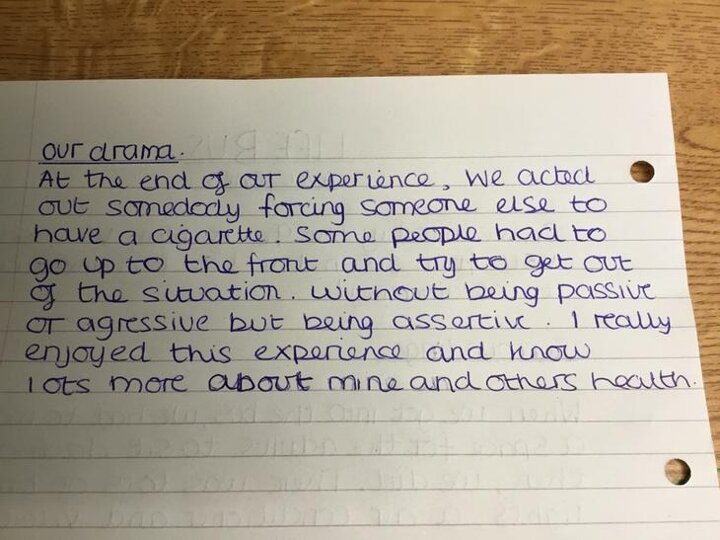 our drama.
At the end of our experience, we acted
out somedody forcing someone else to
have a cigarette. Some people had to
go up to the front and try to get out
of the situation. without being passive
or agressive but being assertive. I really
enjoyed this experience and know
lots more about mine and others health.